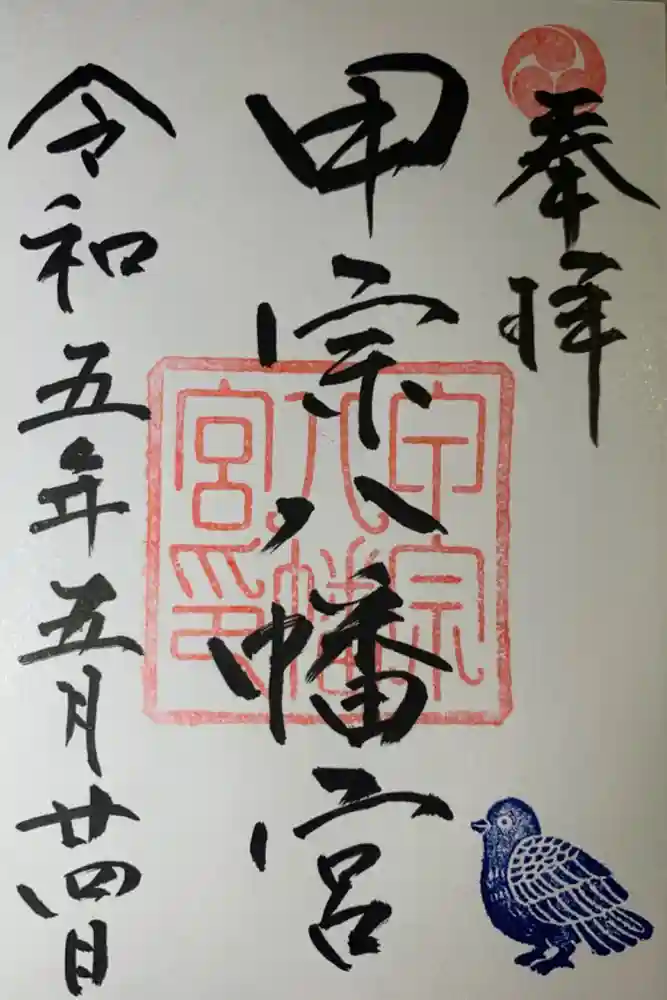 奉拝
甲宗八幡宮
令和五年五月廿四日
甲宗八幡宮印